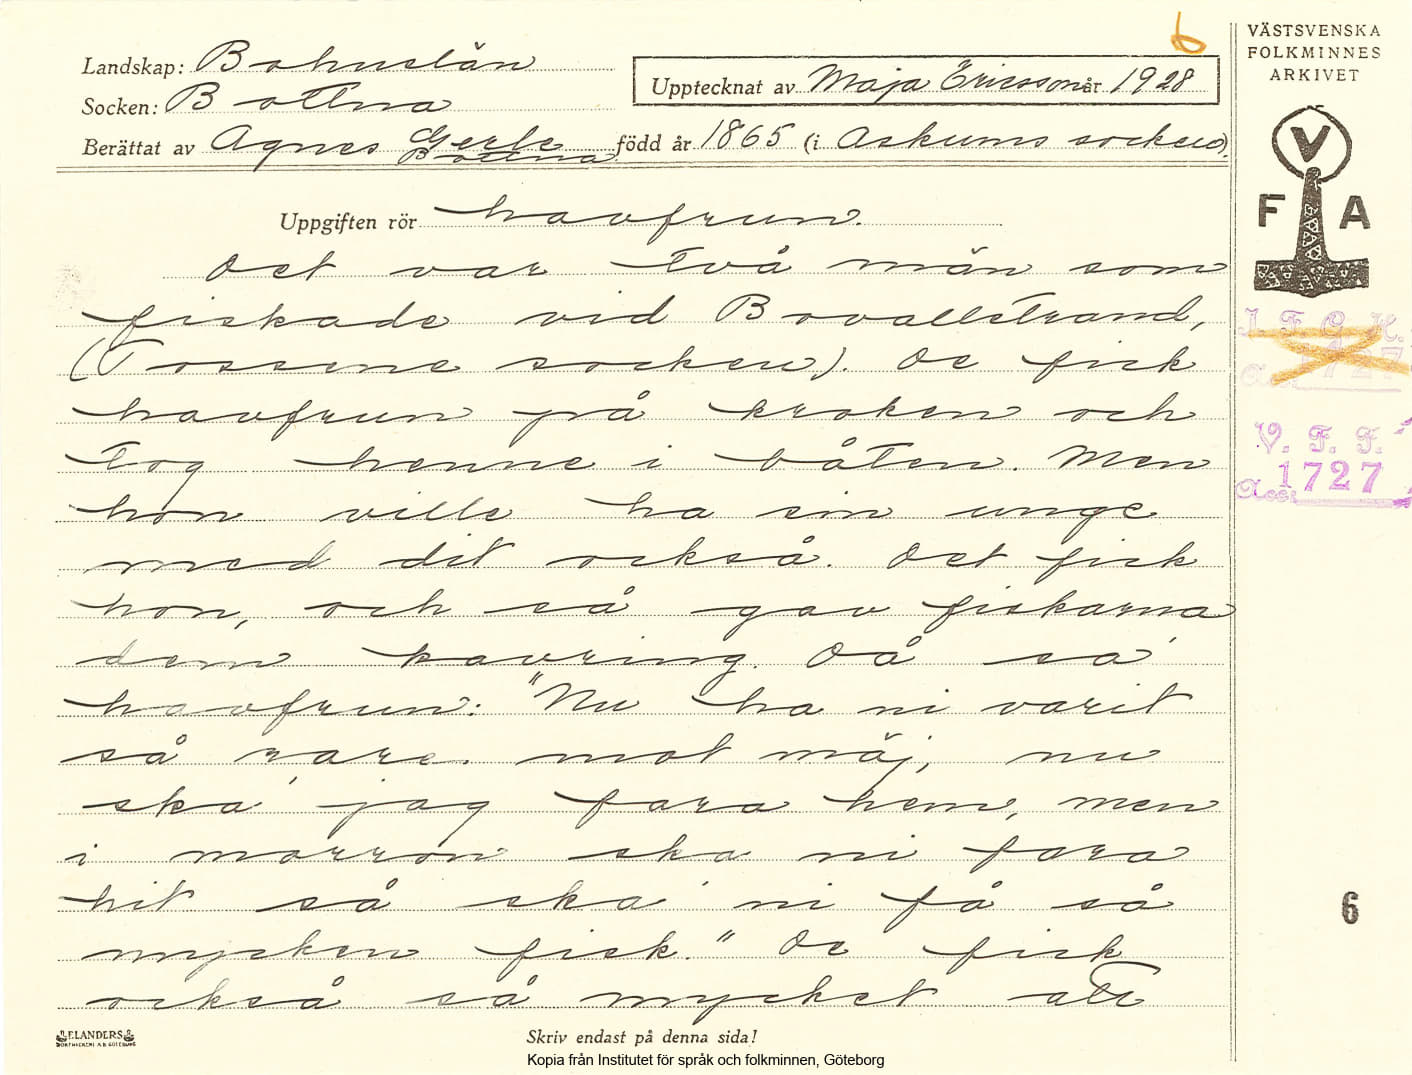 6
VÄSTSVENSKA
FOLKMINNES
ARKIVET
Landskap: Bohuslän
Upptecknat av Maja Ericsson år 1928
Socken: Bottna
Berättat av Agnes Gerle född år 1865 (i Askums socken).
Bottna
V
F A
Uppgiften rör havfrun.
Det var två män som
fiskade vid Bovallstrand,
(Tossene socken). De fick
havfrun på kroken och
tog henne i båten. Men
hon ville ha sin unge
med dit också. Det fick
hon, och så gav fiskarna
dem kavring. Då sa'
havfrun: "Nu ha ni varit
så rare mot mäj, nu
ska' jag fara hem, men
i morron ska ni fara
hit så ska' ni få så
mycken fisk." De fick
också så mycket att
I. F. G. H.
Acc. 1727
V. F. F.
1727
Acc.
6
ELANDERS
BOKTRYCKERI A.B. GÖTEBORG
Skriv endast på denna sida!
Kopia från Institutet för språk och folkminnen, Göteborg